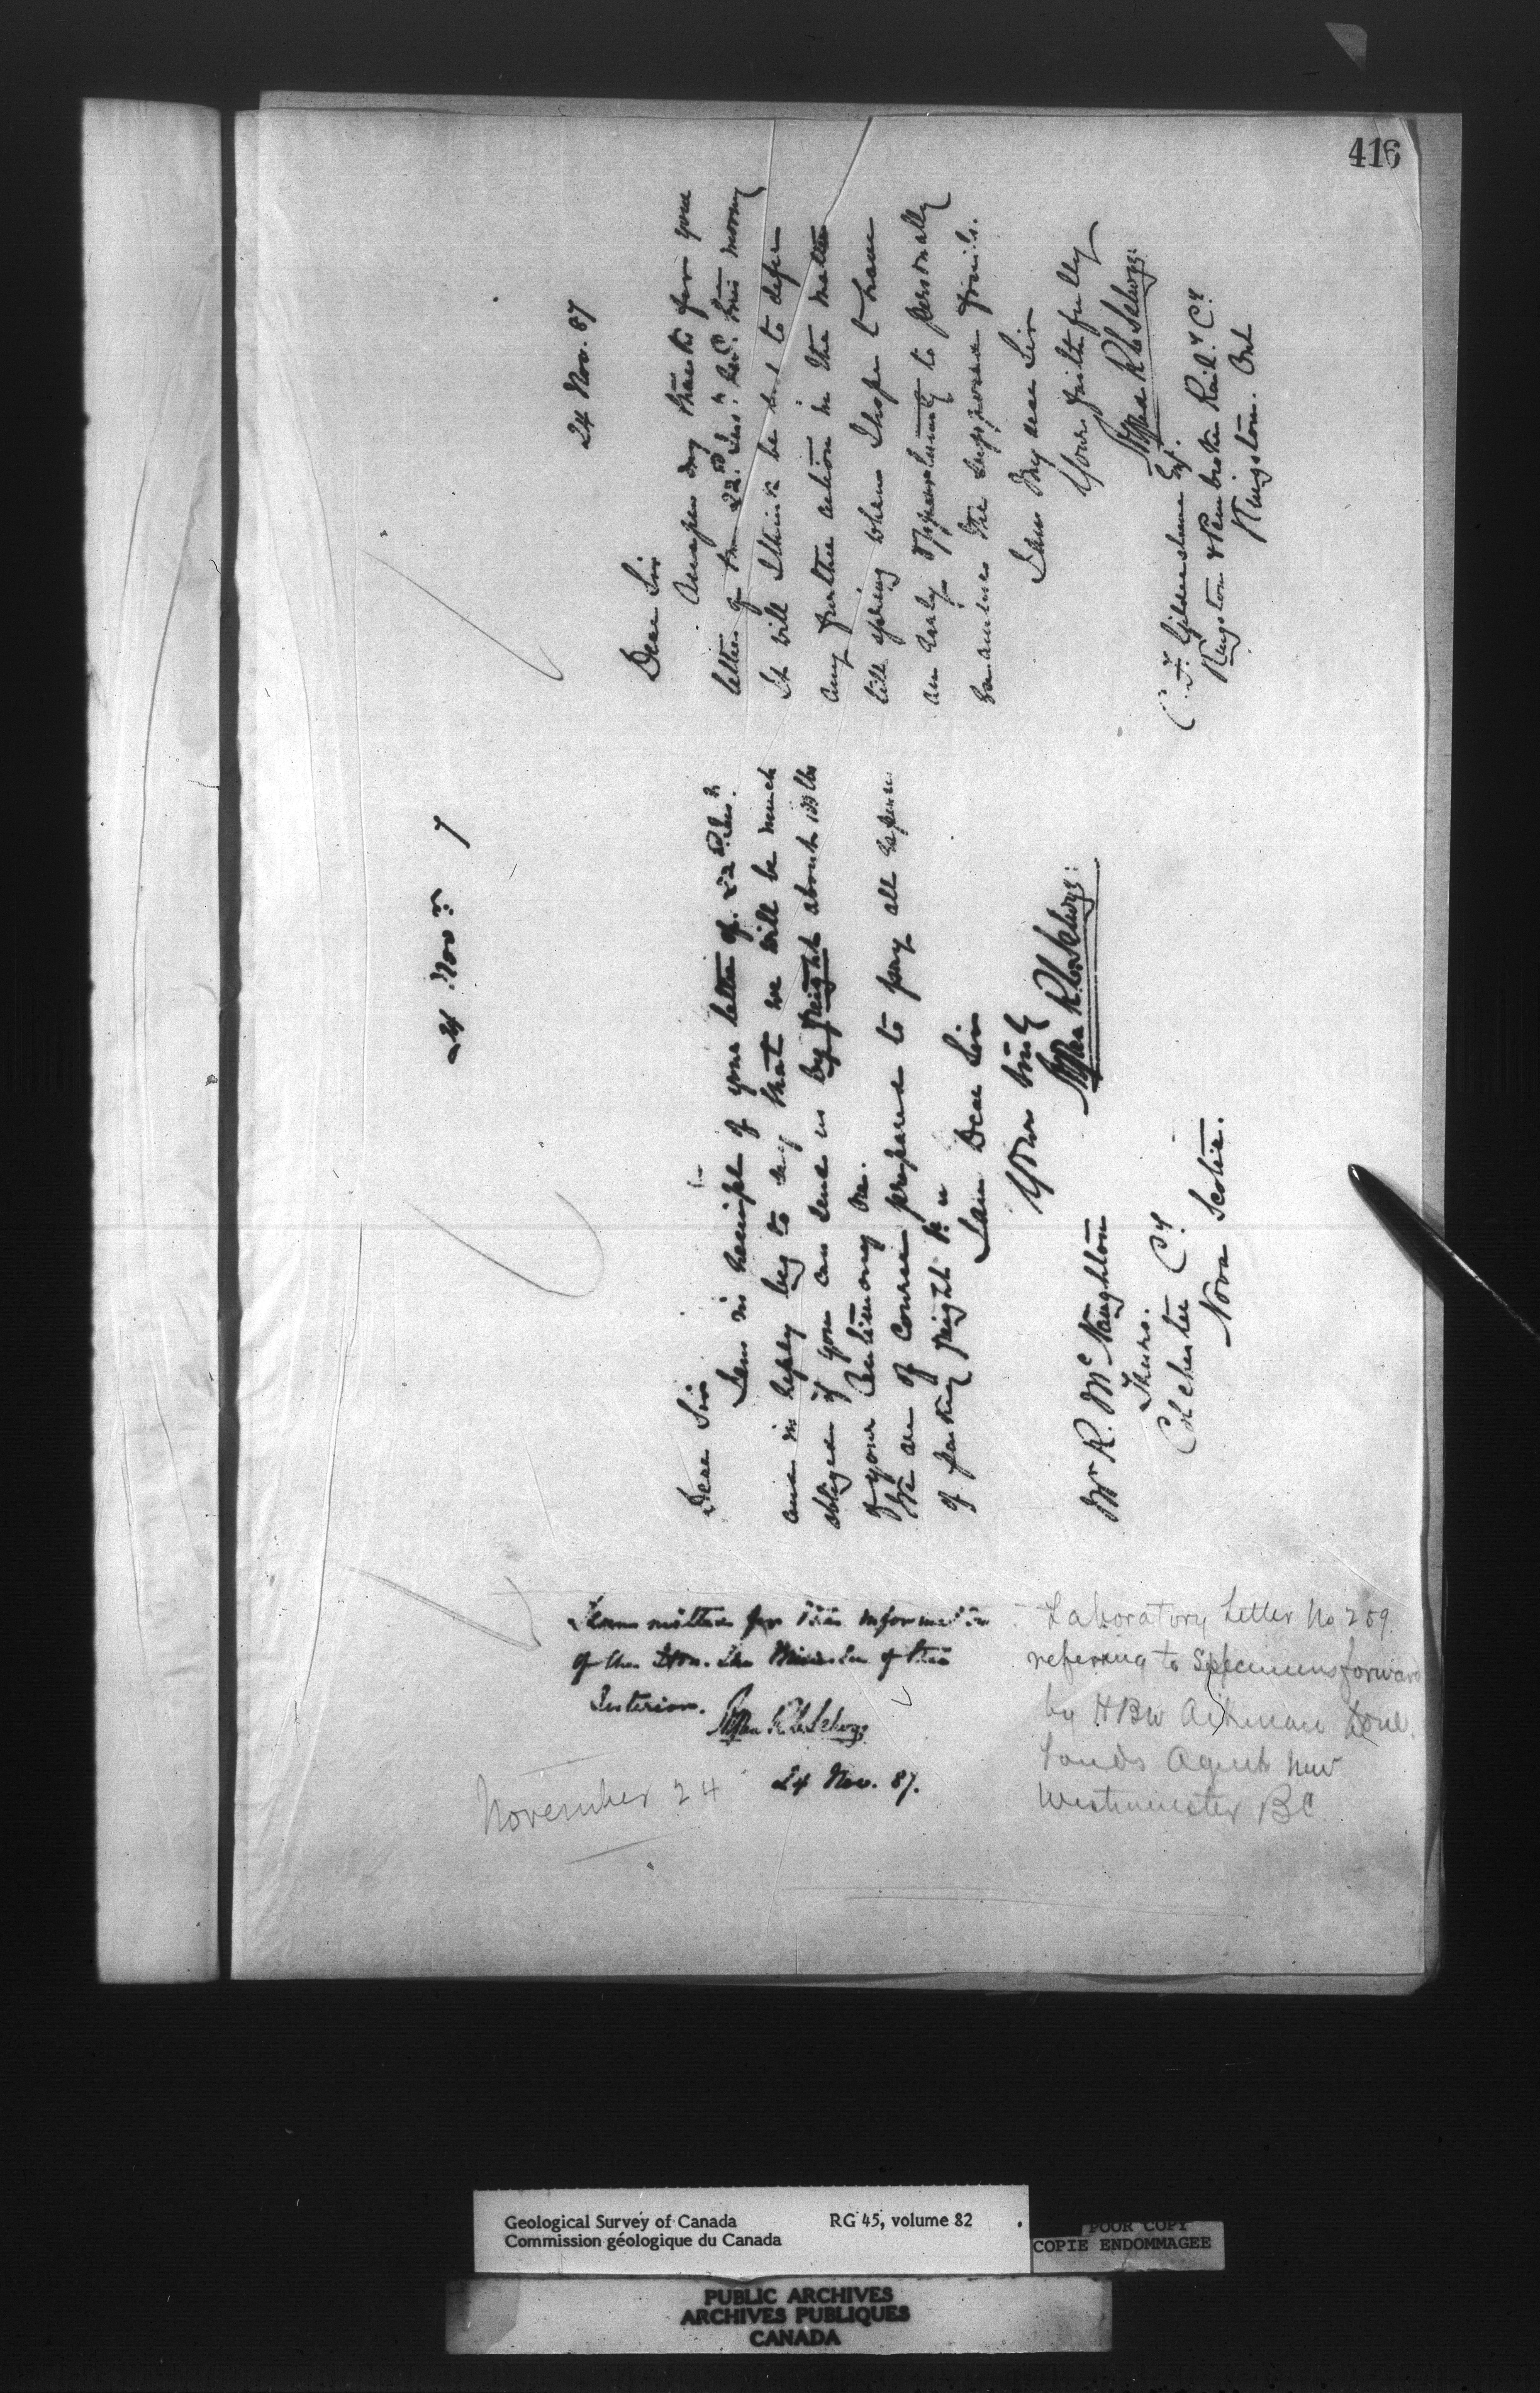 416
24 Nov. 87
Dear Sir
Accept my thanks for your
letter of the 22nd Inst. Recd. this morning
It will I think be best to defer
any further action in the matter
till spring when I hope to have
an early opportunity to personally
examine the supposed fossils.
I am My dear Sir
Yours faithfully
Alfred R. C. Selwyn
C. F. Gildersleeve Esq.
Kingston & Pembroke Rail. Cy.
Kingston. Ont
24 Nov. 7
Dear Sir
I am in receipt of your letter of 22nd Inst.
and in reply beg to say that we will be much
obliged if you can send us by freight about 100 lbs
of your Antimony Ore.
We are of course prepared to pay all expenses
of packing freight
I am Dear Sir
Yours truly
Alfred R. C. Selwyn
Mr R. McNaughton
Truro.
Colchester Cy.
Nova Scotia.
Transmitted for the information
of the Hon. the Minister of the
Interior.
Alfred R. C. Selwyn
24 Nov. 87.
November 24
Laboratory Letter No 209
referring to Specimens forward
by H B W Aikman
Lands Agent New
Westminster BC
Geological Survey of Canada RG 45, volume 82
Commission géologique du Canada
POOR COPY
COPIE ENDOMMAGEE
PUBLIC ARCHIVES
ARCHIVES PUBLIQUES
CANADA